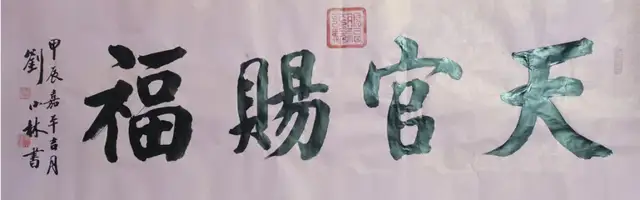 天官賜福
甲辰嘉平吉月
劉小林書